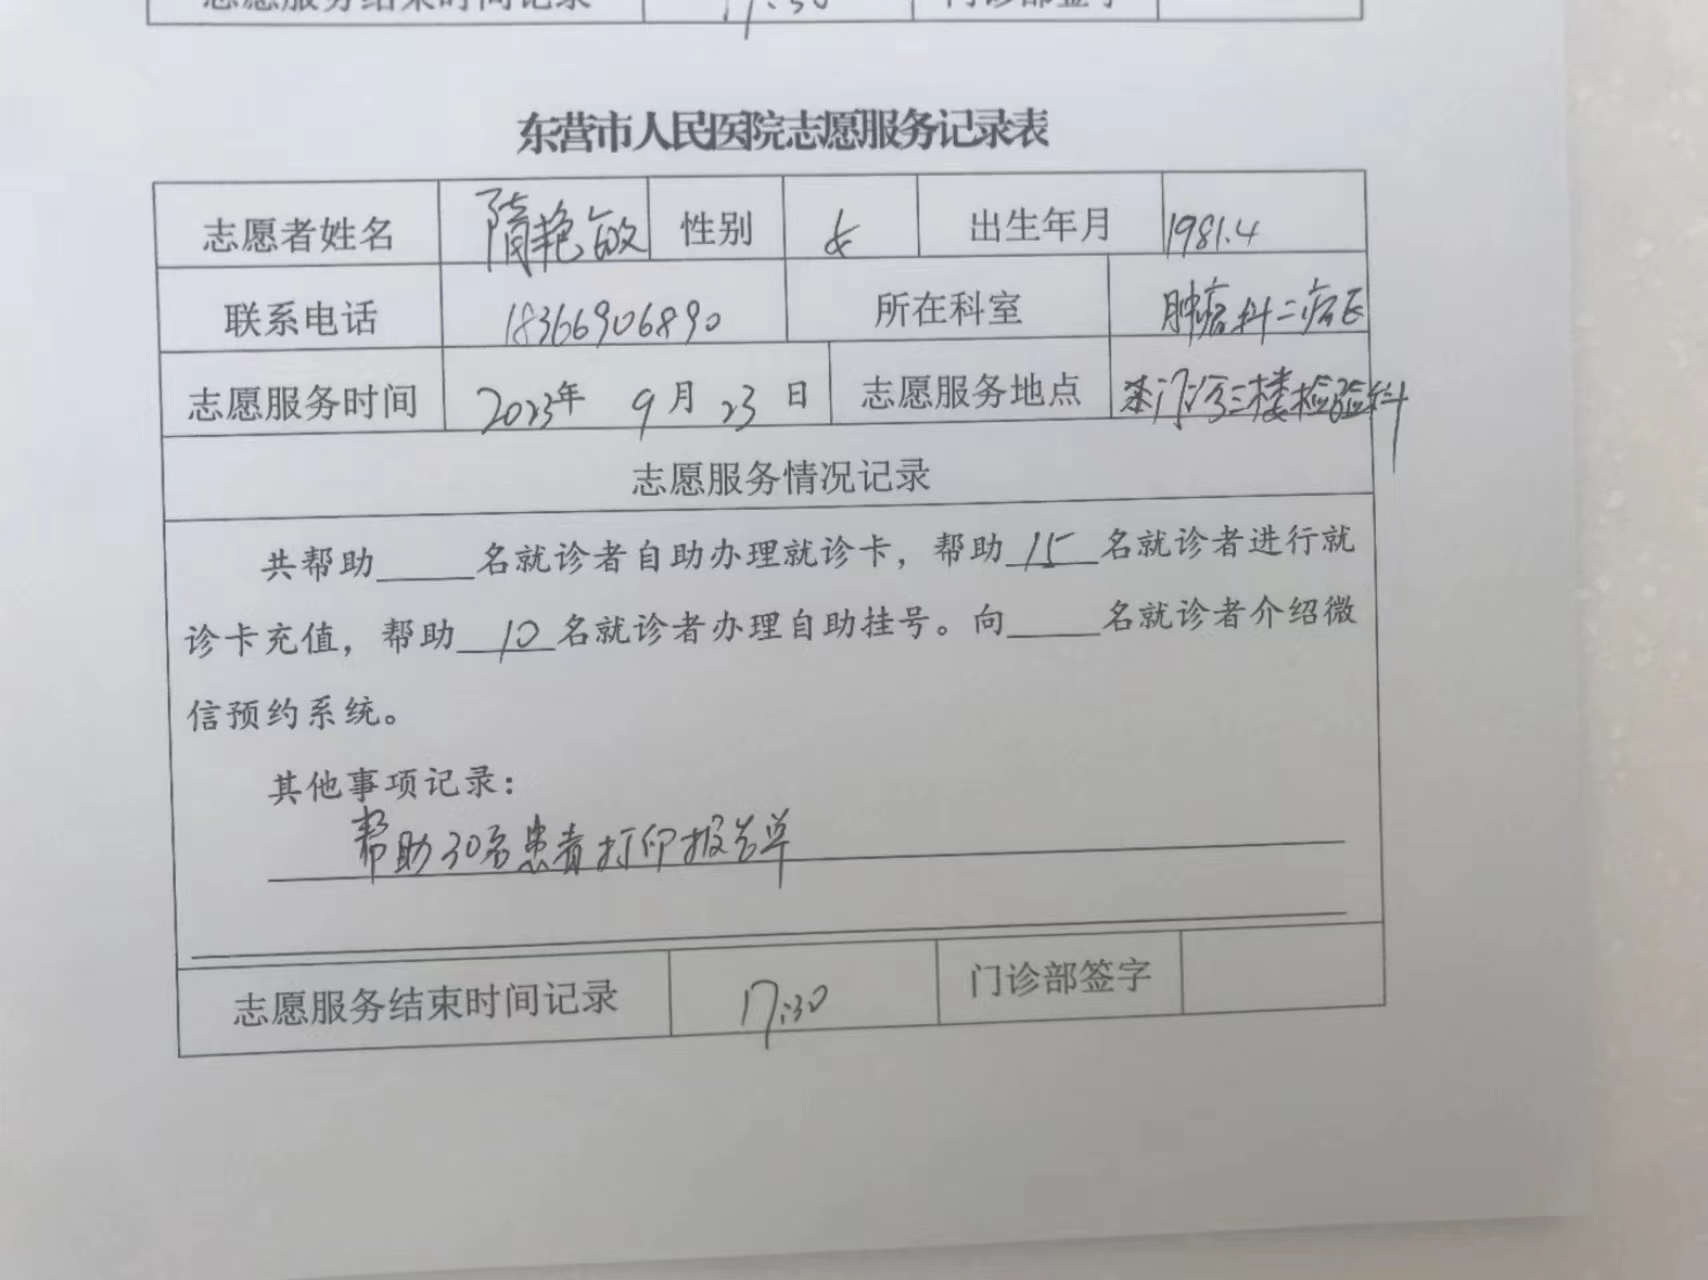 志愿服务结束时间记录 17:30 门诊部签字
东营市人民医院志愿服务记录表
志愿者姓名 隋艳敏 性别 女 出生年月 1981.4
联系电话 18366906890 所在科室 肿瘤科二病区
志愿服务时间 2023年 9月 23日 志愿服务地点 门诊三楼检验科
志愿服务情况记录
共帮助_____名就诊者自助办理就诊卡，帮助 15 名就诊者进行就
诊卡充值，帮助 10 名就诊者办理自助挂号。向_____名就诊者介绍微
信预约系统。
其他事项记录：
帮助30名患者打印报告单
志愿服务结束时间记录 17:30 门诊部签字